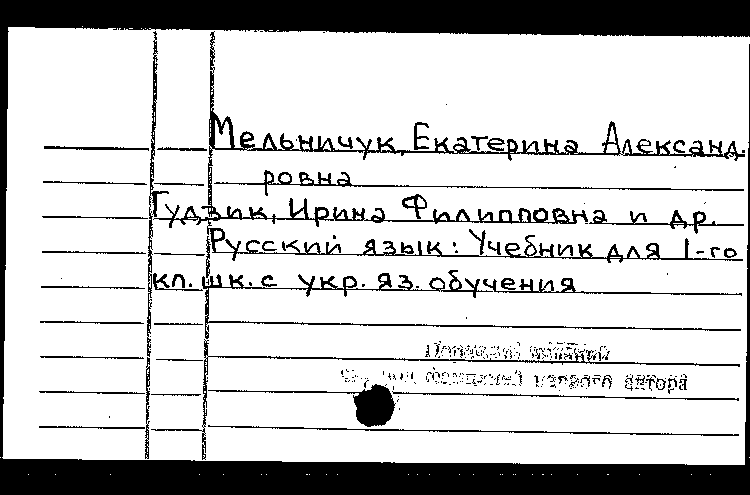 Мельничук, Екатерина Александ-
ровна
Гудзик, Ирина Филипповна и др.
Русский язык: Учебник для 1-го
кл. шк. с укр. яз. обучения
первого автора